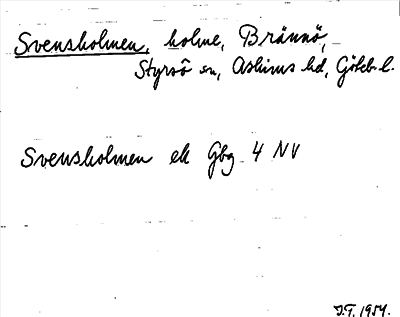 Svensholmen, holme, Brännö,
Styrsö sn, Askims hd, Göteb. l.
Svensholmen ek Gbg 4 NV
J.T. 1954.